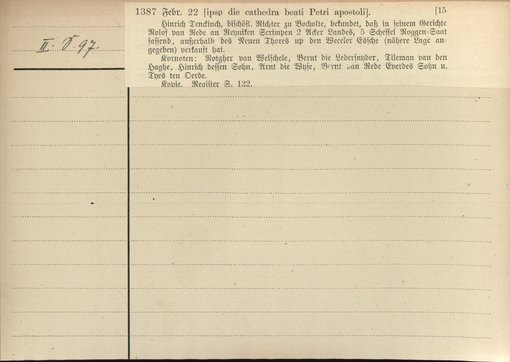 1387 Febr. 22 [ipso die cathedra beati Petri apostoli]. [15
Hinrich Tenckinch, bischöfl. Richter zu Bocholte, bekundet, daß in seinem Gerichte
Rolof van Rede an Reyniken Scrimpen 2 Acker Landes, 5 Scheffel Roggen-Saat
fassend, außerhalb des Neuen Thores up den Wereler Essche (nähere Lage an-
gegeben) verkauft hat.
Kornoten: Rotgher van Welschele, Bernt die Ledersnyder, Tileman van den
Haghe, Hinrich dessen Sohn, Arnt die Wyse, Bernt van Rede Everdes Sohn u.
Tyes ten Oerde.
Kopie. Register S. 132.
II. S. 97.